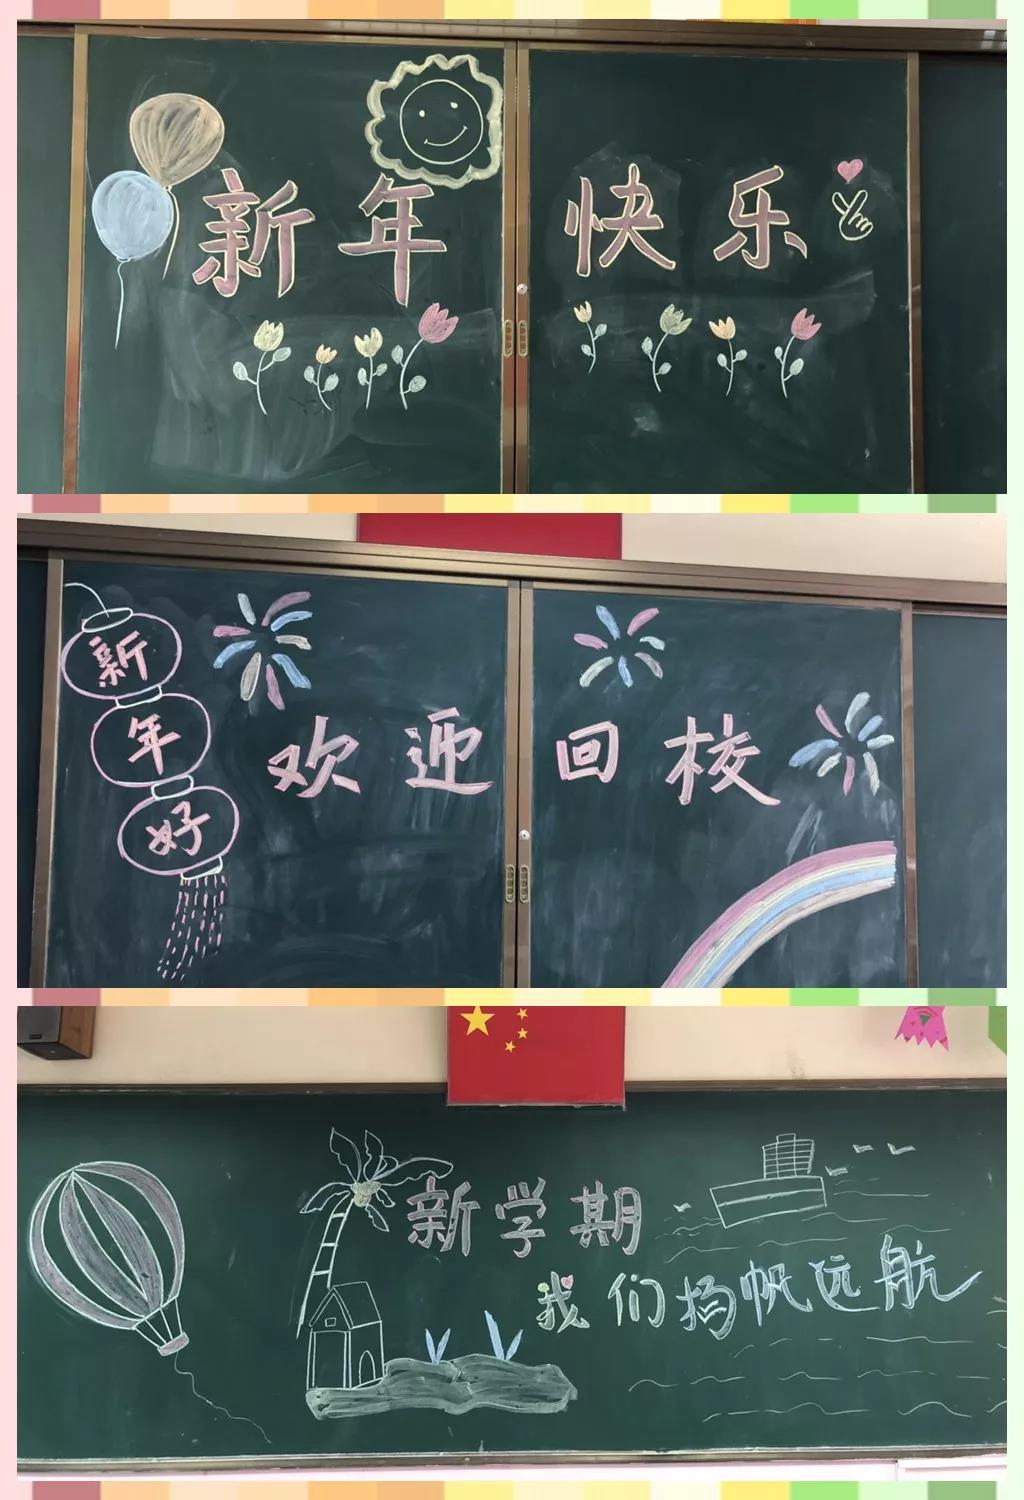 新年快乐
新
年
好
欢迎回校
新学期
我们扬帆远航